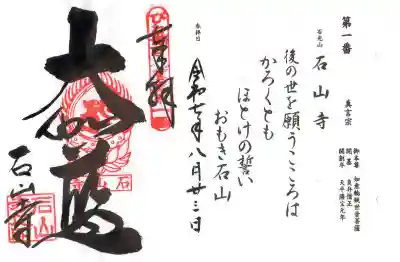 第一番
真言宗
御本尊 如意輪観世音菩薩
開基 良弁僧正
開創年 天平勝宝元年
石光山 石山寺
後の世を願うこころは
かろくとも
ほとけの誓い
おもき石山
参拝日
令和七年八月廿三日
奉拝
大伽藍
石山寺